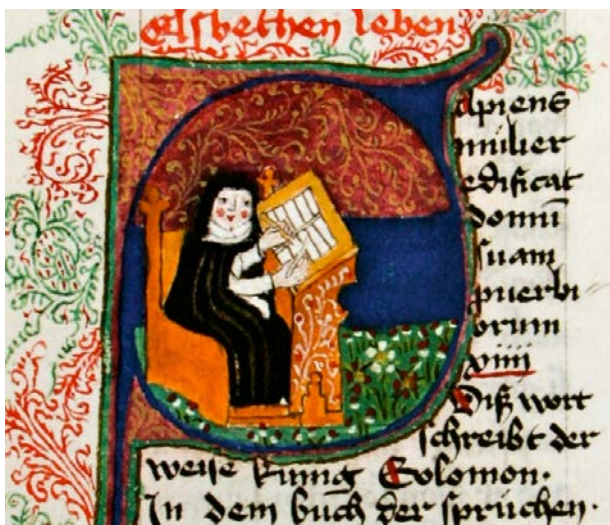 elsbethen leben
apiens
mulier
edificat
domū
suam
puerbi
orum
xiiii
Diß wort
schreibt der
weise kunig Salomon.
In dem buch der sprüchen.